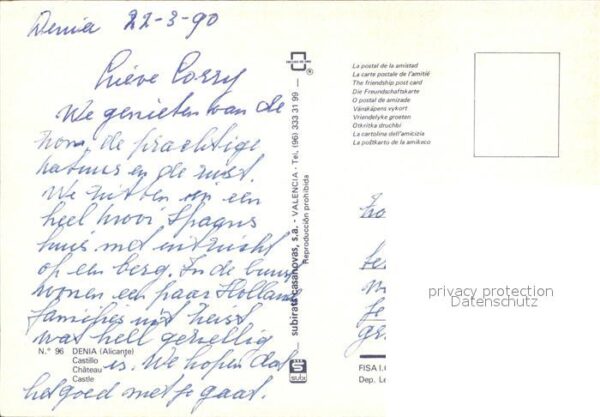 Denia 22-3-90
Lieve Corry
We genieten van de
zon, de prachtige
natuur en de rust.
We zitten in een
heel mooi Spaans
huis met uitzicht
op een berg. In de buurt
wonen een paar Hollandse
families uit
wat heel gezellig
is. We hopen dat
het goed met je gaat.
N.º 96 DENIA (Alicante)
Castillo
Château
Castle
subirats casanovas, s.a. - VALENCIA - Tel. (96) 333 31 99 —
Reproducción prohibida
subi
La postal de la amistad
La carte postale de l'amitié
The friendship post card
Die Freundschaftskarte
O postal de amizade
Vänskápens vykort
Vriendelyke groeten
Otkritka druchbi
La cartolina dell'amicizia
La poŝtkarto de la amikeco
privacy protection
Datenschutz
FISA I.G
Dep. Le